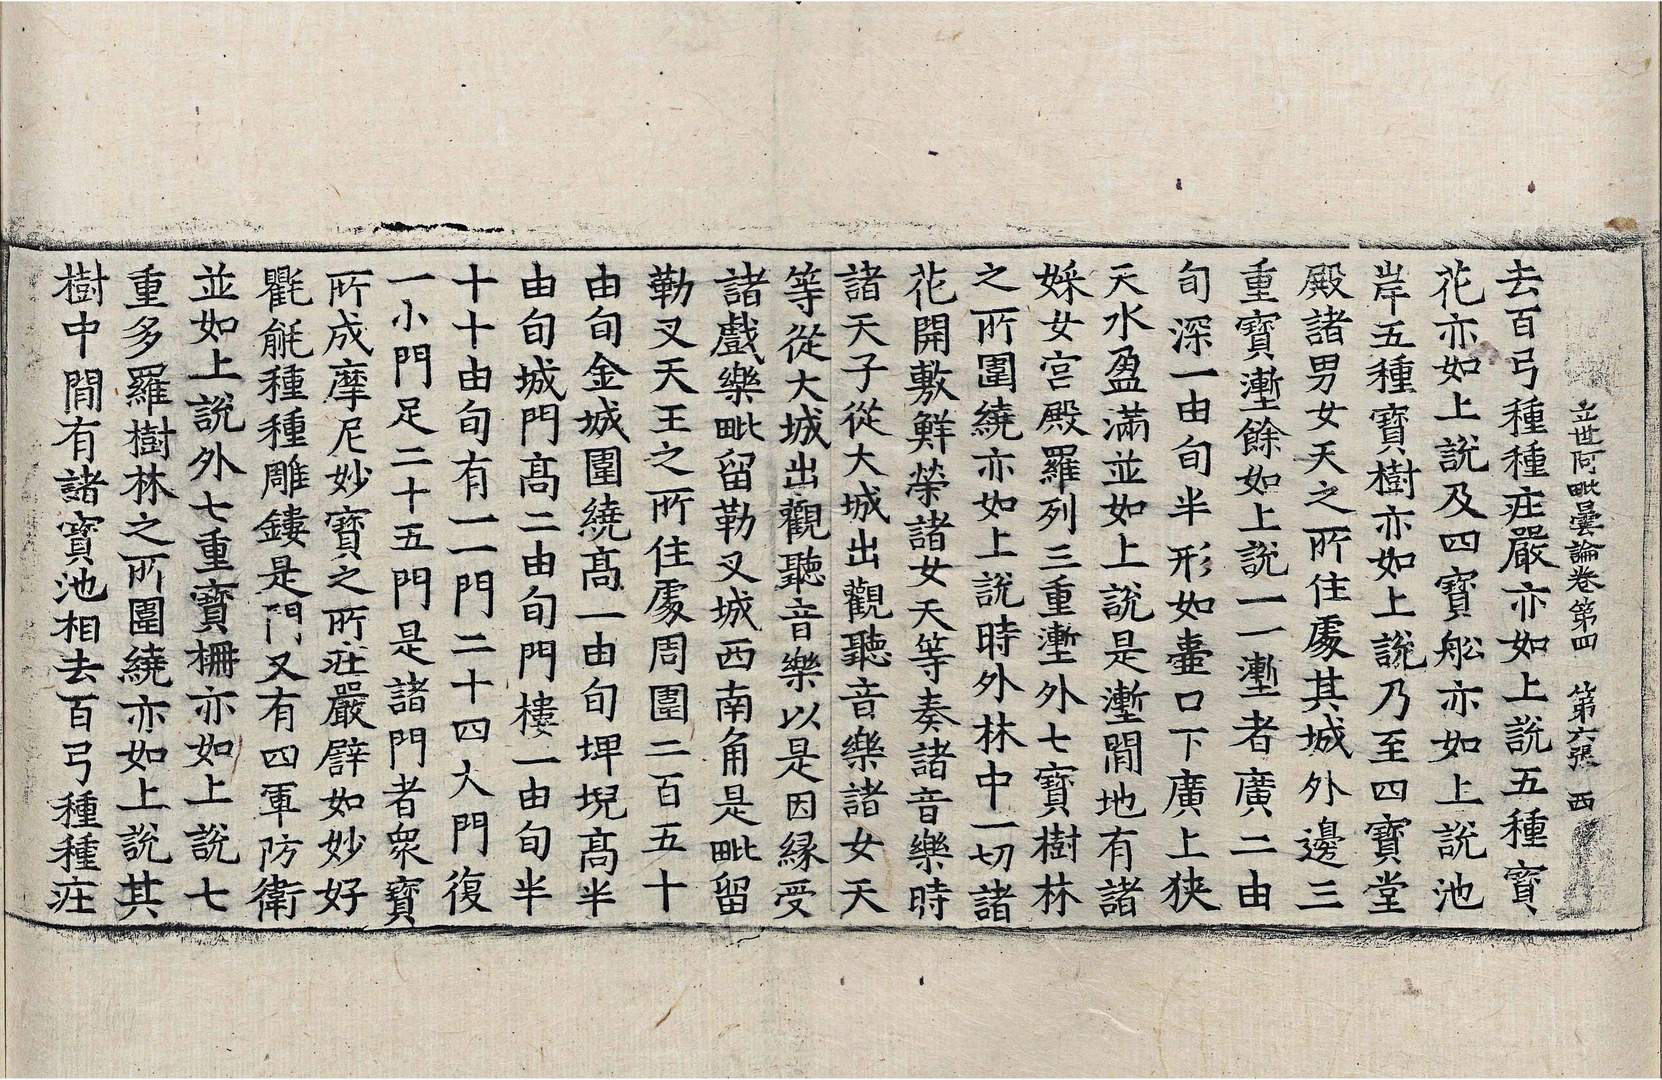 立世阿毗曇論卷第四　第六張　西
去百弓種種庄嚴亦如上說五種寶
花亦如上說及四寶舩亦如上說池
岸五種寶樹亦如上說乃至四寶堂
殿諸男女天之所住處其城外邊三
重寶壍餘如上說一一壍者廣二由
旬深一由旬半形如壷口下廣上狹
天水盈滿並如上說是壍間地有諸
婇女宮殿羅列三重壍外七寶樹林
之所圍繞亦如上說時外林中一切諸
花開敷鮮榮諸女天等奏諸音樂時
諸天子從大城出觀聽音樂諸女天
等從大城出觀聽音樂以是因緣受
諸戲樂毗留勒叉城西南角是毗留
勒叉天王之所住處周圍二百五十
由旬金城圍繞髙一由旬埤堄髙半
由旬城門髙二由旬門樓一由旬半
十十由旬有一一門二十四大門復
一小門足二十五門是諸門者衆寶
所成摩尼妙寶之所莊嚴譬如妙好
氍毹種種雕鏤是門又有四軍防衛
並如上說外七重寶柵亦如上說七
重多羅樹林之所圍繞亦如上說其
樹中間有諸寶池相去百弓種種庄